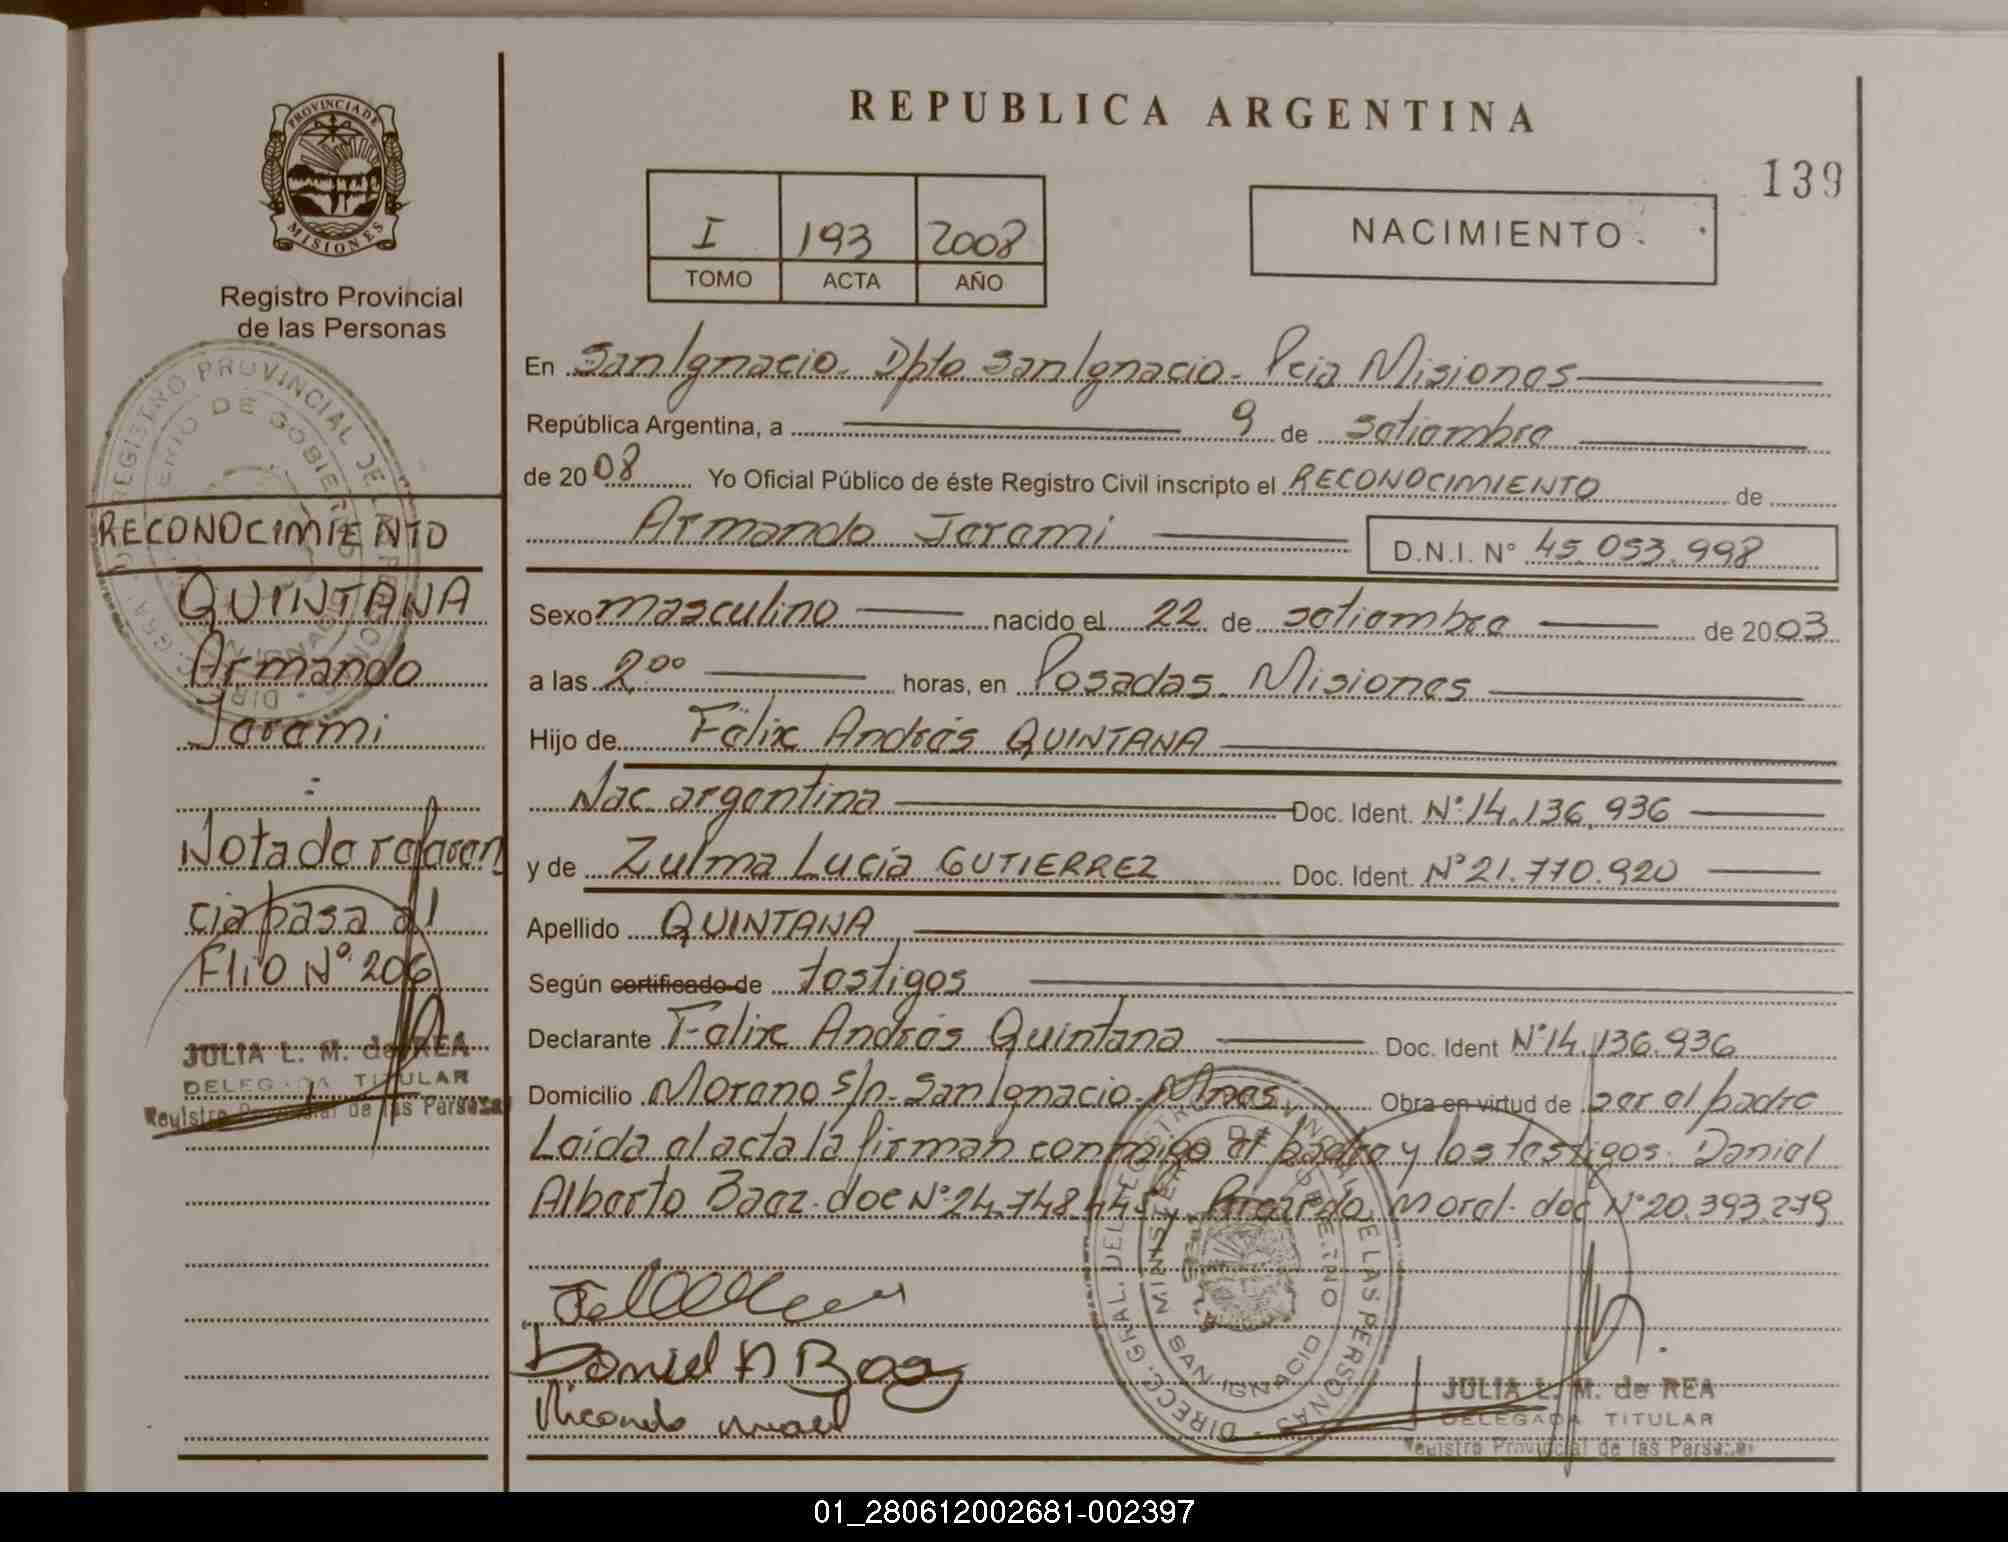 PROVINCIA DE
MISIONES
Registro Provincial
de las Personas
RECONOCIMIENTO
QUINTANA
Armando
Jeremi
Nota de referen
cia pasa al
Flio Nº 206
JULIA L. M. de REA
DELEGADA TITULAR
Registro Provincial de las Personas
REPUBLICA ARGENTINA
139
I 193 2008
TOMO ACTA AÑO
NACIMIENTO
En San Ignacio. Dpto San Ignacio. Pcia Misiones
República Argentina, a 9 de setiembre
de 2008 Yo Oficial Público de éste Registro Civil inscripto el RECONOCIMIENTO de
Armando Jeremi D.N.I. Nº 45.053.998
Sexo masculino nacido el 22 de setiembre de 2003
a las 2⁰⁰ horas, en Posadas. Misiones
Hijo de Félix Andrés QUINTANA
Nac. argentina Doc. Ident. Nº 14.136.936
y de Zulma Lucía GUTIERREZ Doc. Ident. Nº 21.770.920
Apellido QUINTANA
Según certificado de testigos
Declarante Felix Andrés Quintana Doc. Ident Nº 14.136.936
Domicilio Moreno s/n. San Ignacio. Mnes Obra en virtud de ser el padre
Leída el acta la firman conmigo el padre y los testigos. Daniel
Alberto Baez. doc Nº 24.748.445 y Ricardo Morel. doc Nº 20.393.279
Daniel A Baez
Ricardo morel
DIRECC. GRAL. DEL REGISTRO PROVINCIAL DE LAS PERSONAS
MINISTERIO DE GOBIERNO
SAN IGNACIO
JULIA L. M. de REA
DELEGADA TITULAR
Registro Provincial de las Personas
01_280612002681-002397